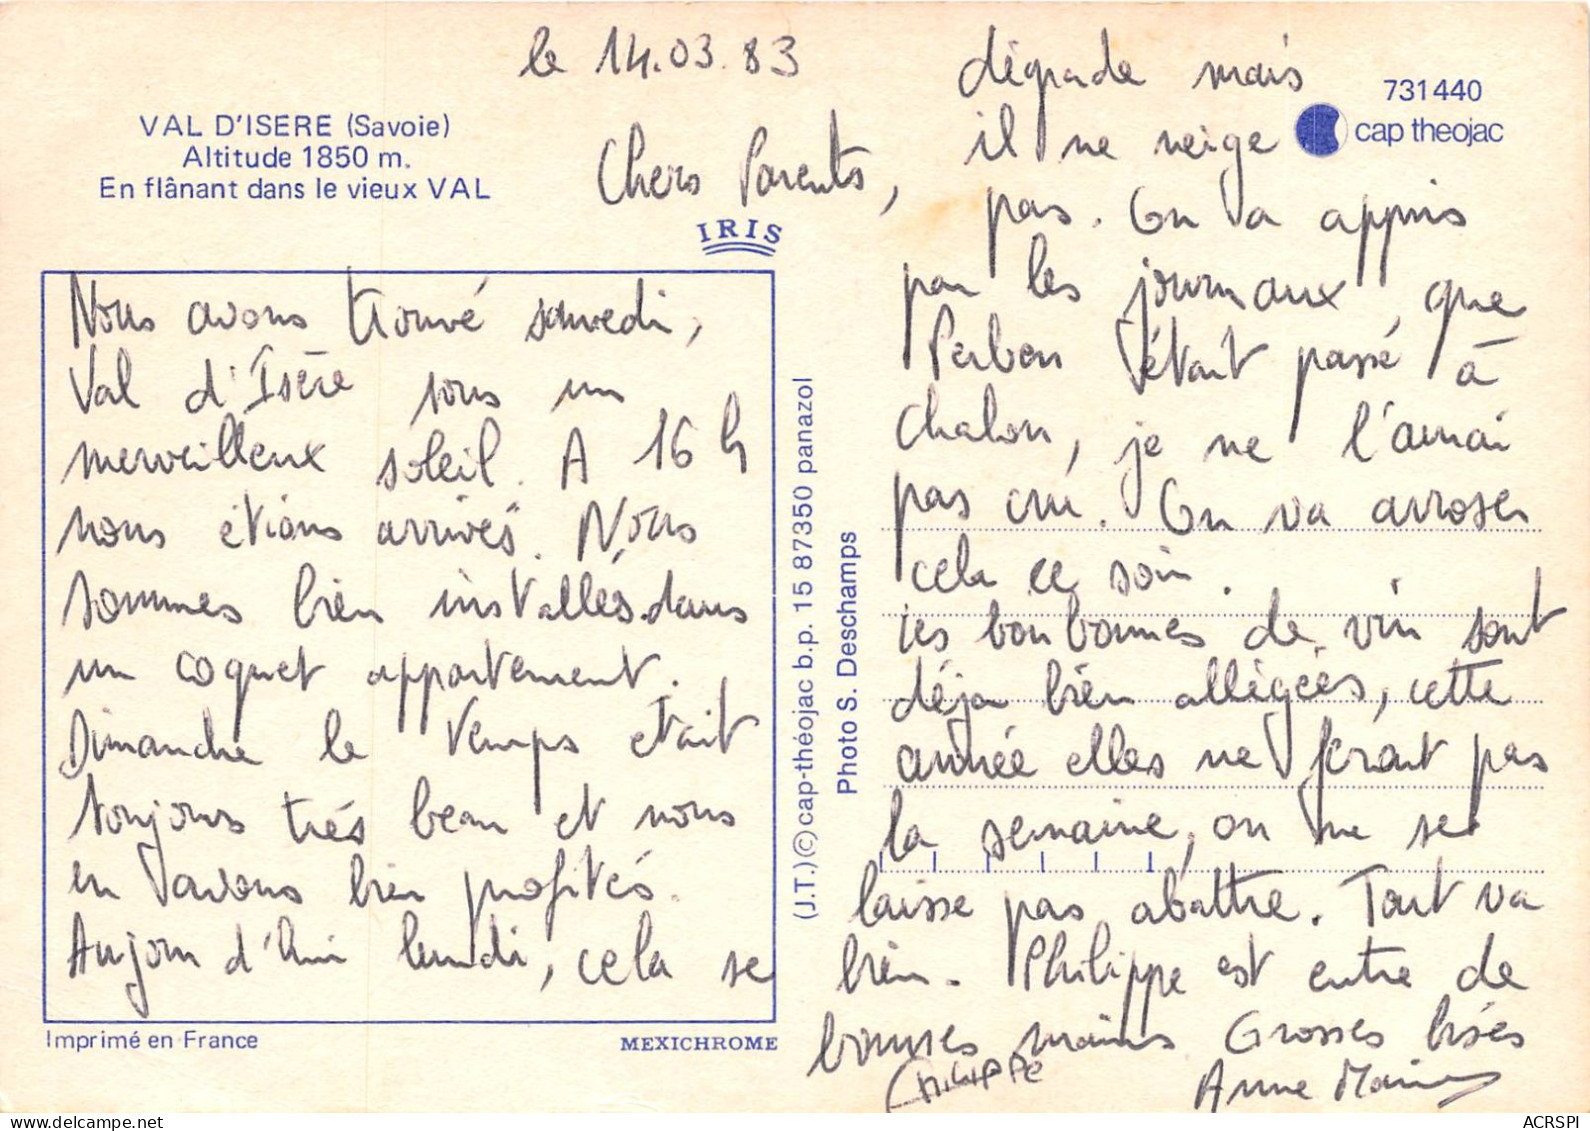 VAL D'ISERE (Savoie)
Altitude 1850 m.
En flânant dans le vieux VAL
731440
cap theojac
IRIS
le 14.03.83
Chers Parents,
Nous avons trouvé samedi,
Val d'Isère sous un
merveilleux soleil. A 16 h
nous étions arrivés. Nous
sommes bien installés dans
un coquet appartement.
Dimanche le temps était
toujours très beau et nous
en avons bien profités.
Aujourd'hui lundi, cela se
dégrade mais
il ne neige
pas. On a appris
par les journaux, que
était passé à
Chalon, je ne l'aurai
pas cru. On va arroser
cela ce soir.
Les bonbonnes de vin sont
déja bien allégées, cette
année elles ne feront pas
la semaine, on ne se
laisse pas abattre. Tout va
bien. Philippe est entre de
bonnes mains Grosses bises
PHILIPPE
Anne Marie
(J.T.) © cap-théojac b.p. 15 87350 panazol
Photo S. Deschamps
Imprimé en France
MEXICHROME
ACRSPI